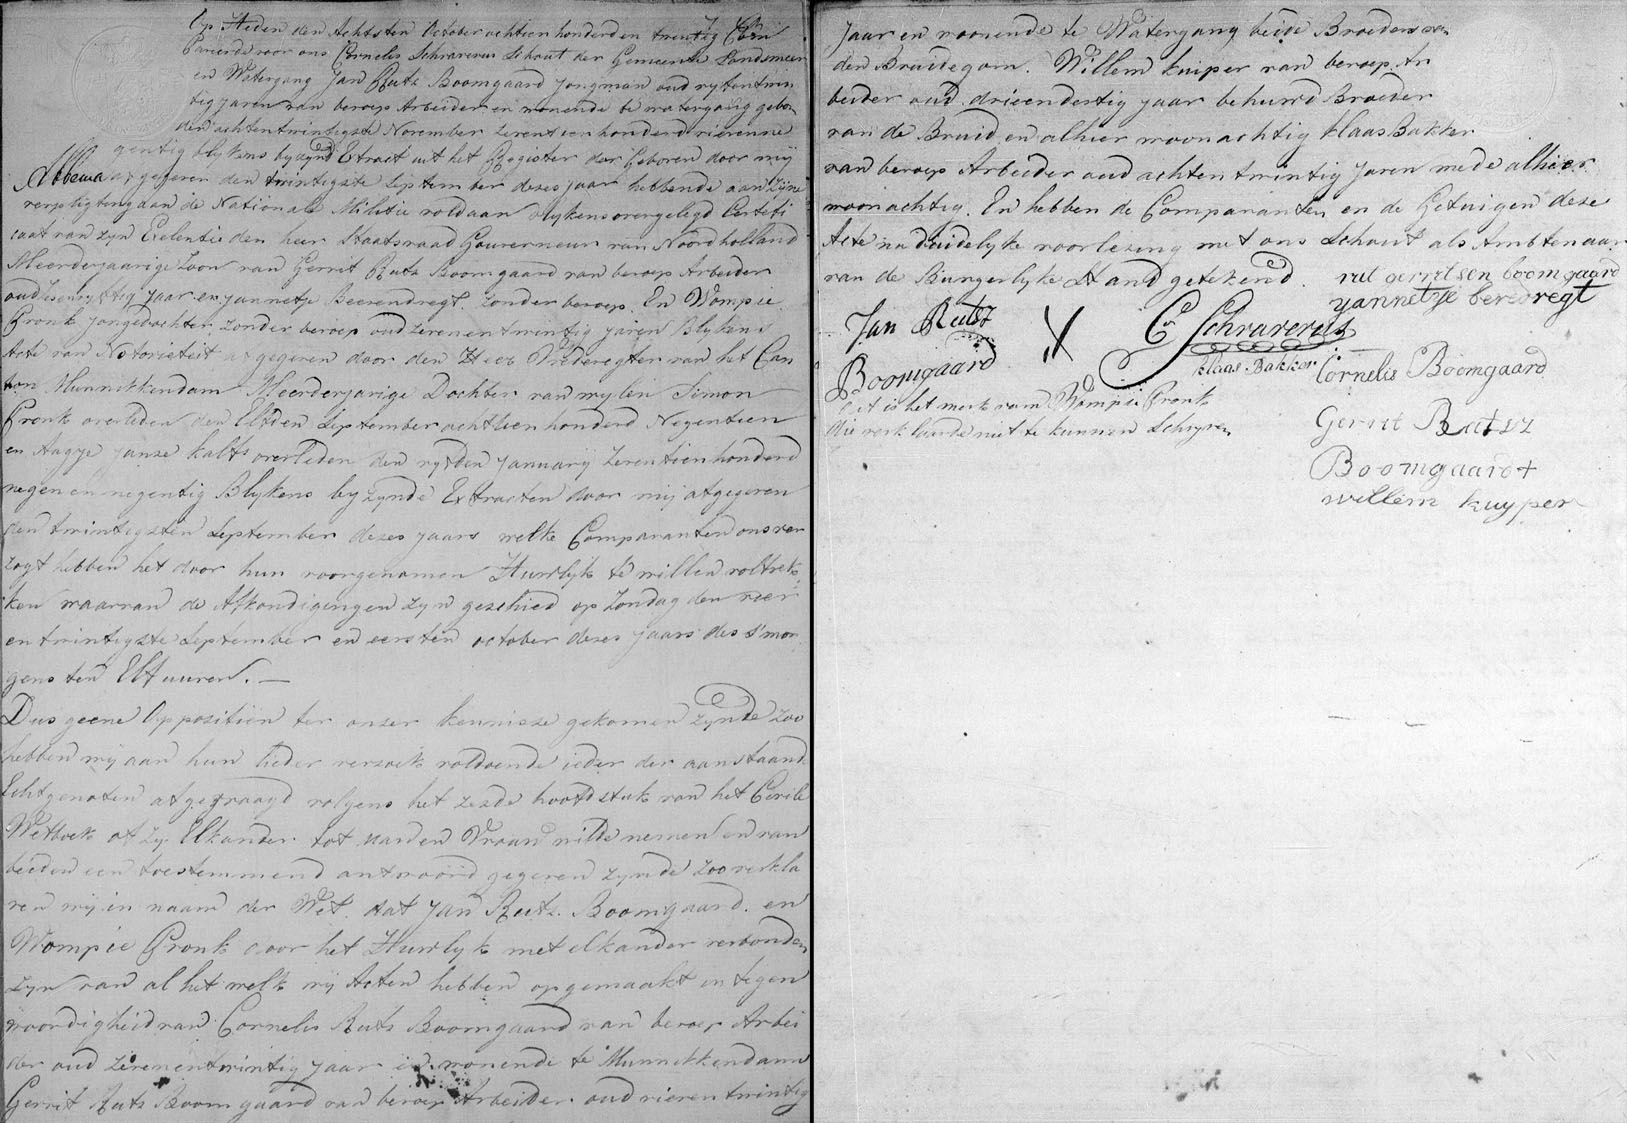 Op Heden den Achtsten October achtien honderd en twintig Com
pareerde voor ons Cornelis Schraverus Schout der Gemeente Landsmeer
en Watergang Jan Ruts Boomgaard Jongman oud vyfentwin
tig jaren van beroep Arbeider en wonende te watergang gebo
den achtentwintigste November zeventienhonderd vierenne
gentig blykens byzynd Etract uit het Register der Geboren door mij
Abbema afgegeven den twintigste September dezes jaar hebbende aan zijne
verpligting aan de Nationale Militie voldaan blykens overgelegd Certifi
caat van zyn Exelentie den heer Staatsraad Gouverneur van Noordholland
Meerderjaarige Zoon van Gerrit Ruts Boomgaard van beroep Arbeider
oud jaar en jannetje Beerendregt zonder beroep. En Wompie
Pronk jongedochter zonder beroep oud zevenentwintig jaren Blykens
Acte van Notorieteit afgegeven door den Heer Vrederegter van het Can
ton Munnikkendam Meerderjarige Dochter van wylen Simon
Pronk overleden den Elfden September achttienhonderd Negentien
en Aagje Janse kalts overleden den vyfden January zeventienhonderd
negenennegentig Blykens byzynde Extracten door mij afgegeven
den twintigsten September dezes jaars welke Comparanten ons ver
zogt hebben het door hun voorgenomen Huwlyk te willen voltrek
ken waarvan de Afkondigingen zyn geschied op Zondag den vier
en twintigste September en eersten october dezes jaars des s'mor
gens ten Elf uuren. —
Dus geene Oppositien ter onzer kennisse gekomen zynde zoo
hebben wij aan hun lieder verzoek voldoende ieder der aanstaand
Echtgenoten afgevraagd volgens het zesde hoofdstuk van het Civile
Wetboek of zy Elkander tot Man en Vrouw wilde nemen en van
beiden een toestemmend antwoord gegeven zynde zoo verkla
ren wij in naam der Wet dat Jan Ruts Boomgaard en
Wompie Pronk door het Huwlyk met elkander verbonden
zyn van al het welk wy Acten hebben opgemaakt in tegen
woordigheid van Cornelis Ruts Boomgaard van beroep Arbei
der oud zevenentwintig jaar en wonende te Munnikkendam
Gerrit Ruts Boomgaard van beroep Arbeider oud vierentwintig
Jaar en woonende te Watergang beide Broeders van
den Bruidegom. Willem kuiper van beroep Ar
beider oud drieendertig jaar behuwd Broeder
van de Bruid en alhier woonachtig klaas Bakker
van beroep Arbeider oud achtentwintig jaren mede alhier
woonachtig. En hebben de Comparanten en de Getuigen deze
Acte na duidelyke voorlezing met ons Schout als Ambtenaar
van de Burgerlyke Stand getekend.
rut gerretsen boomgaard
yannetje beredregt
Jan Rutsz
Boomgaard
X
Cs Schraverus
klaas Bakker
Cornelis Boomgaard
Dit is het merk van Wompie Pronk
die verklaarde niet te kunnen Schryven
Gerrit Rutsz
Boomgaard
willem kuyper